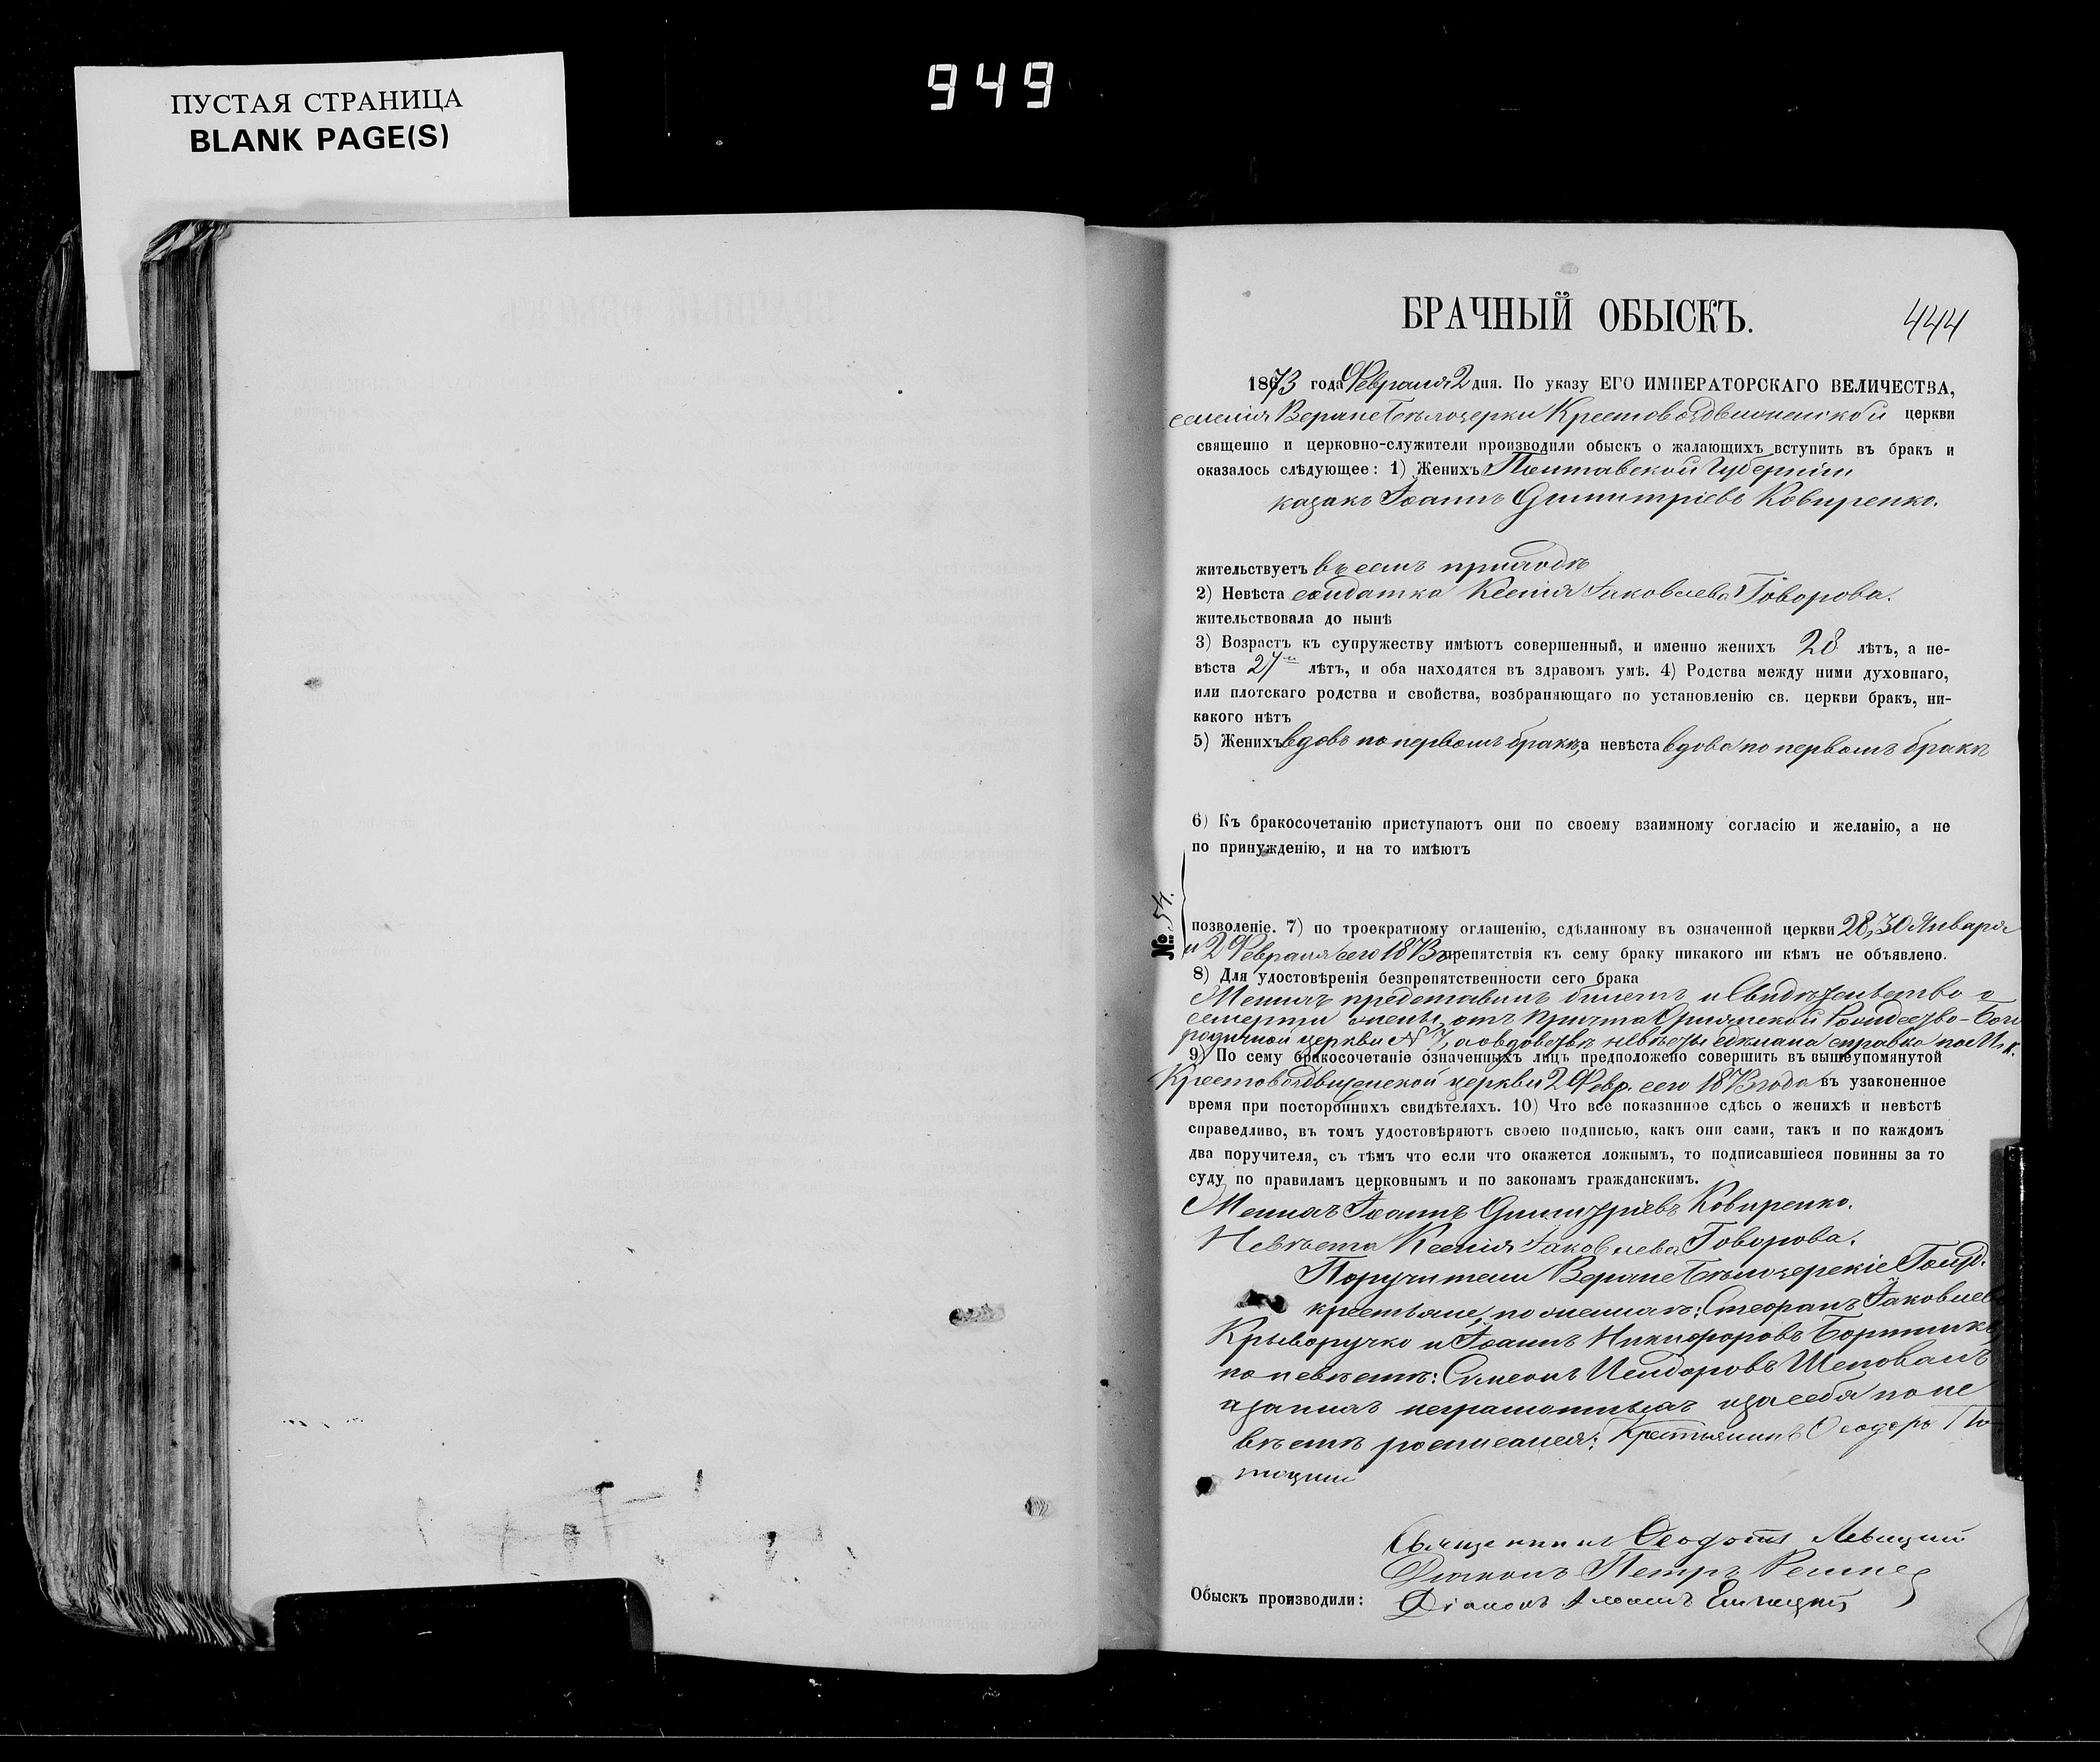 949
ПУСТАЯ СТРАНИЦА
BLANK PAGE(S)
БРАЧНЫЙ ОБЫСКЪ.
444
1873 года Февраля 2 дня. По указу ЕГО ИМПЕРАТОРСКАГО ВЕЛИЧЕСТВА,
селенія Верхне Бѣлозерки Крестовоздвиженской церкви
священно и церковно-служители производили обыскъ о жалающихъ вступить въ бракъ и
оказалось слѣдующее: 1) Женихъ Полтавской Губерніи
казакъ Іоаннъ Димитріевъ Ковиренко.
жительствуетъ въ семъ приходѣ
2) Невѣста солдатка Ксенія Іаковлева Говорова.
жительствовала до нынѣ
3) Возрастъ къ супружеству имѣютъ совершенный, и именно женихъ 28 лѣтъ, а не-
вѣста 27 лѣтъ, и оба находятся въ здравомъ умѣ. 4) Родства между ними духовнаго,
или плотскаго родства и свойства, возбраняющаго по установленію св. церкви бракъ, ни-
какого нѣтъ
5) Женихъ вдовъ по первомъ бракѣ, а невѣста вдова по первомъ бракѣ
6) Къ бракосочетанію приступаютъ они по своему взаимному согласію и желанію, а не
по принужденію, и на то имѣютъ
№ 54.
позволеніе. 7) по троекратному оглашенію, сдѣланному въ означенной церкви 28, 30 Января
и 2 Февраля сего 1873 г. препятствія къ сему браку никакого ни кѣмъ не объявлено.
8) Для удостовѣренія безпрепятственности сего брака
Женихъ представилъ билетъ и Свидѣтельство о
смерти жены отъ Причта Рождество-Бого
родичной церкви № 7, а о вдовствѣ невѣсты сдѣлана справка по
9) По сему бракосочетаніе означенныхъ лицъ предположено совершить въ вышеупомянутой
Крестовоздвиженской церкви 2 Февр. сего 1873 года въ узаконенное
время при постороннихъ свидѣтеляхъ. 10) Что все показанное сдѣсь о женихѣ и невѣстѣ
справедливо, въ томъ удостовѣряютъ своею подписью, какъ они сами, такъ и по каждомъ
два поручителя, съ тѣмъ что если что окажется ложнымъ, то подписавшіеся повинны за то
суду по правиламъ церковнымъ и по законамъ гражданскимъ.
Женихъ Іоаннъ Димитріевъ Ковиренко.
Невѣста Ксенія Іаковлева Говорова.
Поручители Верхне Бѣлозерскіе Госуд.
крестьяне, по женихѣ: Стефанъ Іаковлевъ
Криворучко и Іоаннъ Никифоровъ
по невѣстѣ: Симеонъ Исидоровъ Шеповалъ
а за нихъ неграмотныхъ и за себя по не
вѣстѣ росписался: Крестьянинъ Феодоръ
Священникъ Феодотъ Левицкий
Діаконъ Петръ
Обыскъ производили: Діаконъ